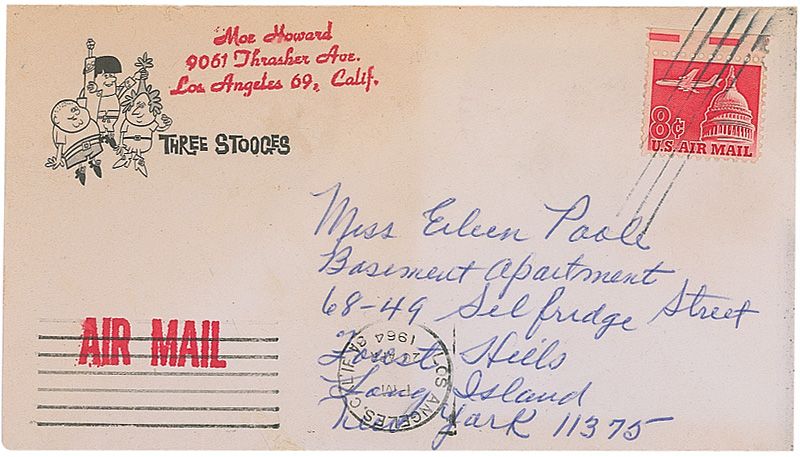 Moe Howard
9061 Thrasher Ave.
Los Angeles 69, Calif.
THREE STOOGES
8¢
U.S. AIR MAIL
Miss Eileen Poole
Basement Apartment
68-49 Selfridge Street
Forest Hills
Long Island
New York 11375
AIR MAIL
LOS ANGELES, CALIF.
PM
1964